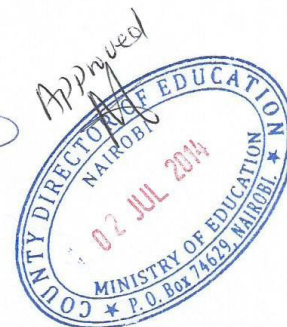 Approved
COUNTY DIRECTOR OF EDUCATION
NAIROBI
02 JUL 2014
MINISTRY OF EDUCATION
★ P. O. Box 74629, NAIROBI. ★